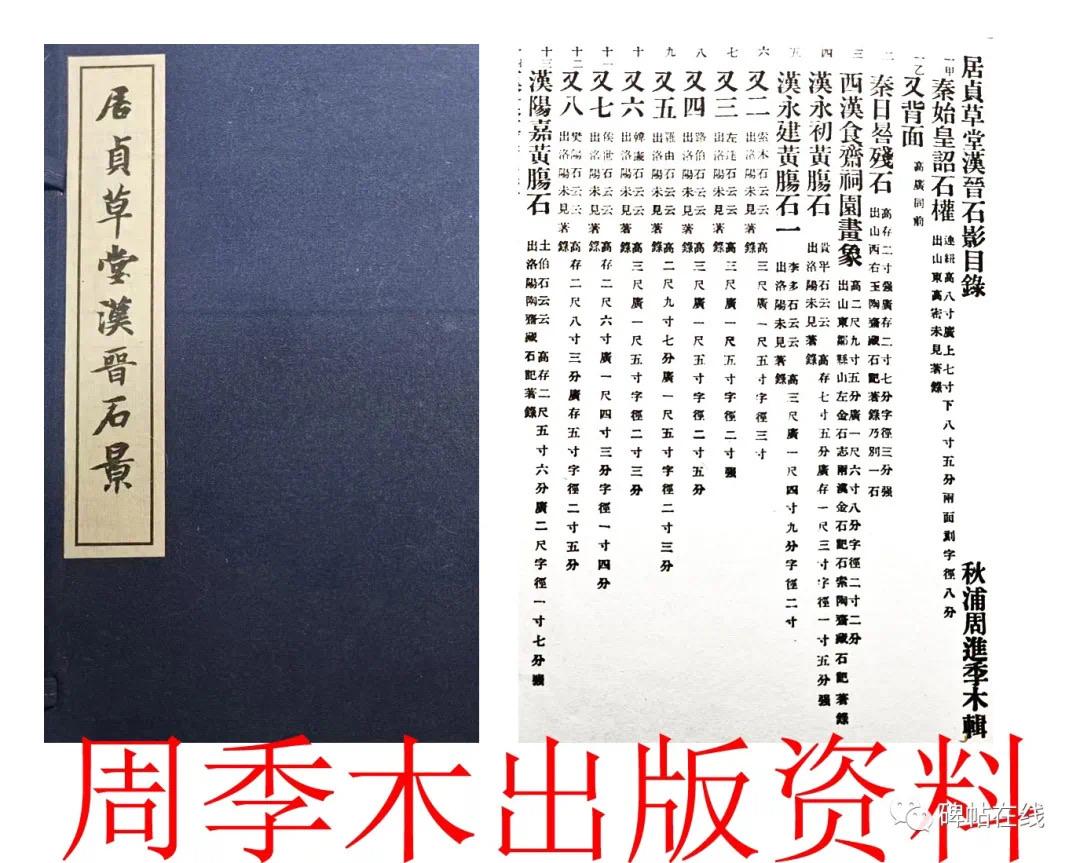 居貞草堂漢晉石景
居貞草堂漢晉石影目錄
秋浦周進季木輯
一甲
秦始皇詔石權
連紐高八寸廣上七寸下八寸五分兩面刻字徑八分
出山東高密未見著錄
一乙
又背面
高廣同前
二
殘石
高存二寸强廣存二寸七分字徑三分强
出山西右玉陶齋藏石記著錄乃別一石
三
西漢食齋祠園畫象
高二尺九寸五分廣一尺六寸八分字徑二寸二分
出山東鄒縣山左金石志兩漢金石記石索陶齋藏石記著錄
四
漢永初黃腸石
貴平石云云 高存七寸五分廣存一尺三寸字徑一寸五分强
出洛陽未見著錄
五
漢永建黃腸石一
李多石云云 高三尺廣一尺四寸九分字徑二寸
出洛陽未見著錄
六
又二
索木石云云 高三尺廣一尺五寸字徑三寸
出洛陽未見著錄
七
又三
左達石云云 高三尺廣一尺五寸字徑二寸强
出洛陽未見著錄
八
又四
路伯石云云 高三尺廣一尺五寸字徑二寸五分
出洛陽未見著錄
九
又五
羅由石云云 高二尺九寸七分廣一尺五寸字徑二寸三分
出洛陽未見著錄
十
又六
石云云 高三尺廣一尺五寸字徑二寸三分
出洛陽未見著錄
十一
又七
石云云 高存二尺六寸廣一尺四寸三分字徑一寸四分
出洛陽未見著錄
十二
又八
樊陽石云云 高存二尺八寸三分廣存五寸字徑二寸五分
出洛陽未見著錄
十三
漢陽嘉黃腸石
土伯石云云 高存二尺五寸六分廣二尺字徑一寸七分强
出洛陽陶齋藏石記著錄
周季木出版资料
碑帖在线